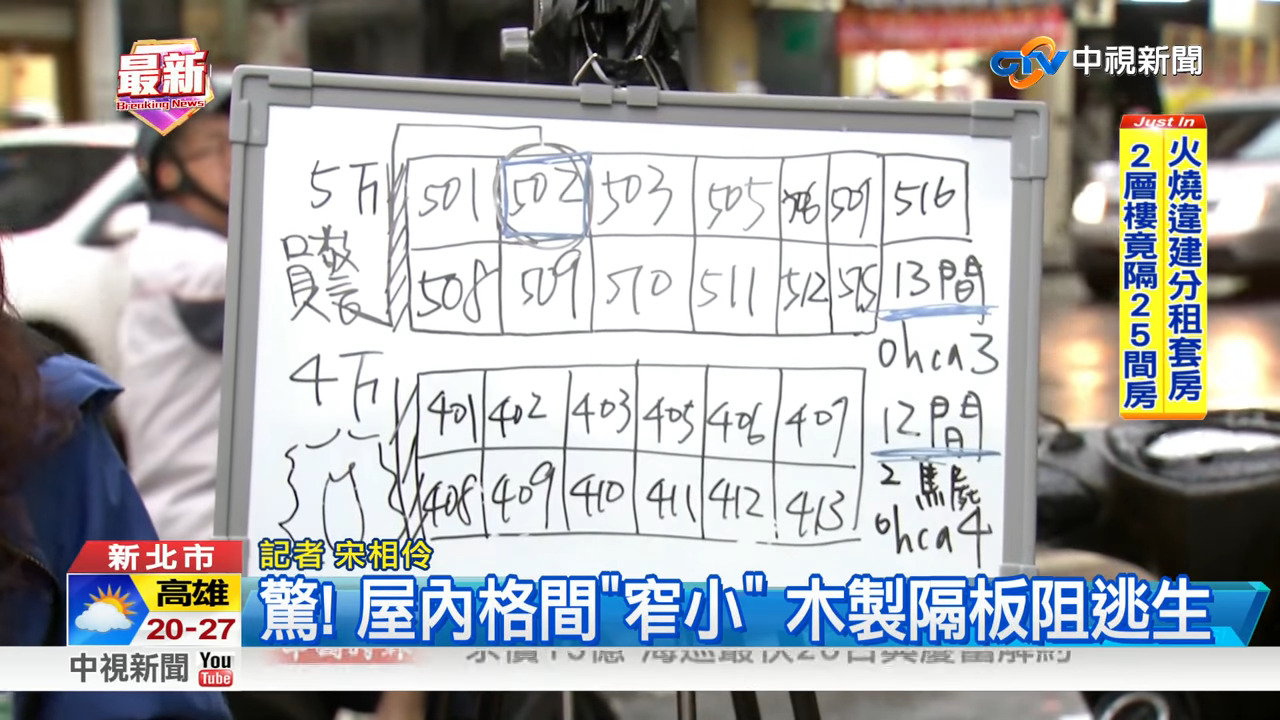 最新
Breaking News
CTV 中視新聞
Just In
火燒違建分租套房
2層樓竟隔25間房
5万
501 502 503 505 506 507 516
508 509 510 511 512 515 13間
ohca 3
4万
401 402 403 405 406 407 12間
408 409 410 411 412 413
2 焦屍
ohca 4
記者 宋相伶
驚! 屋內格間"窄小" 木製隔板阻逃生
新北市
高雄
20-27
中視新聞 YouTube